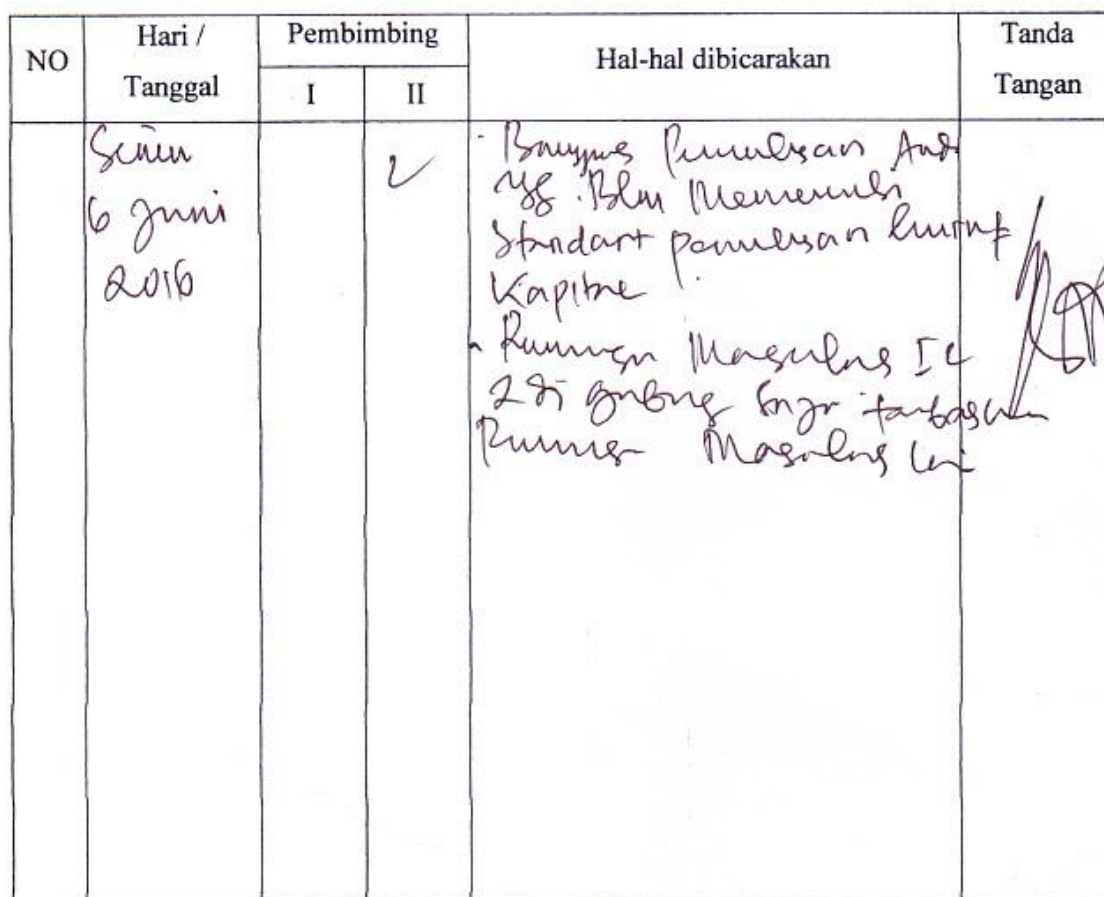 NO
Hari /
Tanggal
Pembimbing
I
II
Hal-hal dibicarakan
Tanda
Tangan
Senin
6 Juni
2016
Penulisan
yg Blm Memenuhi
Standart penulisan huruf
Kapital
Rumusan Masalah I &
2 di gabung saja
Rumusan Masalah